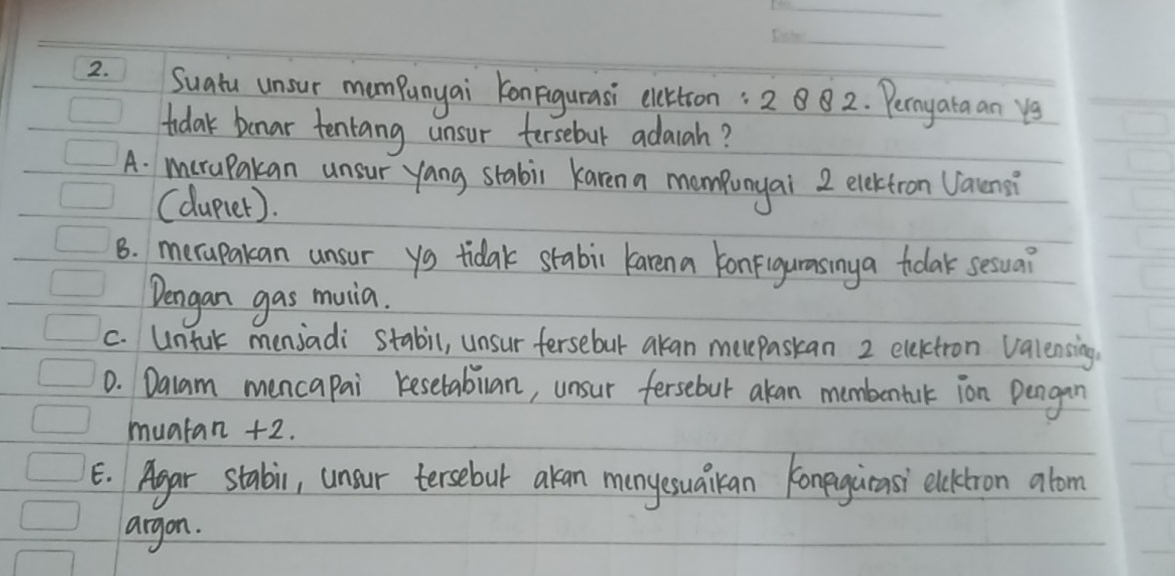 2. Suatu unsur mempunyai konfigurasi elektron : 2 8 8 2. Pernyataan yg
tidak benar tentang unsur tersebut adalah?
A. merupakan unsur yang stabil karena mempunyai 2 elektron Valensi
(duplet).
B. merupakan unsur yg tidak stabil karena konfigurasinya tidak sesuai
Dengan gas mulia.
C. Untuk menjadi stabil, unsur tersebut akan melepaskan 2 elektron Valensinya.
D. Dalam mencapai kesetabilan, unsur tersebut akan membentuk ion Dengan
muatan +2.
E. Agar stabil, unsur tersebut akan menyesuaikan konfigurasi elektron atom
argon.